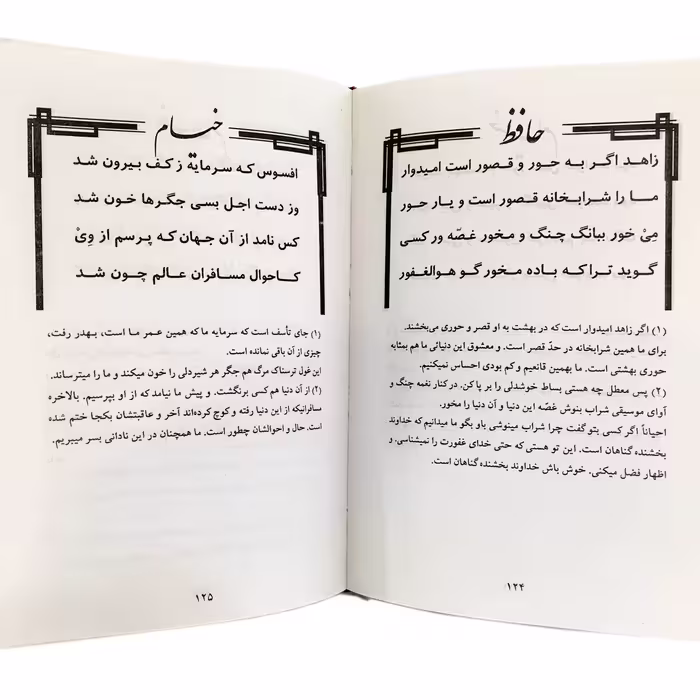 حافظ
زاهد اگر به حور و قصور است امیدوار
ما را شرابخانه قصور است و یار حور
مِیْ خور ببانگ چنگ و مخور غصّه ور کسی
گوید ترا که باده مخور گو هوالغفور
(۱) اگر زاهد امیدوار است که در بهشت به او قصر و حوری می‌بخشند.
برای ما همین شرابخانه در حدّ قصر است. و معشوق این دنیائی ما هم بمثابه
حوری بهشتی است. ما بهمین قانعیم و کم بودی احساس نمیکنیم.
(۲) پس معطل چه هستی بساط خوشدلی را بر پا کن. در کنار نغمه چنگ و
آوای موسیقی شراب بنوش غصّه این دنیا و آن دنیا را مخور.
احیاناً اگر کسی بتو گفت چرا شراب مینوشی باو بگو ما میدانیم که خداوند
بخشنده گناهان است. این تو هستی که حتی خدای غفورت را نمیشناسی. و
اظهار فضل میکنی. خوش باش خداوند بخشنده گناهان است.
۱۲۴
خیام
افسوس که سرمایه ز کف بیرون شد
وز دست اجل بسی جگرها خون شد
کس نامد از آن جهان که پرسم از وِیْ
کاحوال مسافران عالم چون شد
(۱) جای تأسف است که سرمایه ما که همین عمر ما است، بهدر رفت،
چیزی از آن باقی نمانده است.
این غول ترسناک مرگ هم جگر هر شیردلی را خون میکند و ما را میترساند.
(۲) از آن دنیا هم کسی برنگشت. و پیش ما نیامد که از او بپرسیم. بالاخره
مسافرانیکه از این دنیا رفته و کوچ کرده‌اند آخر و عاقبتشان بکجا ختم شده
است. حال و احوالشان چطور است. ما همچنان در این نادانی بسر میبریم.
۱۲۵